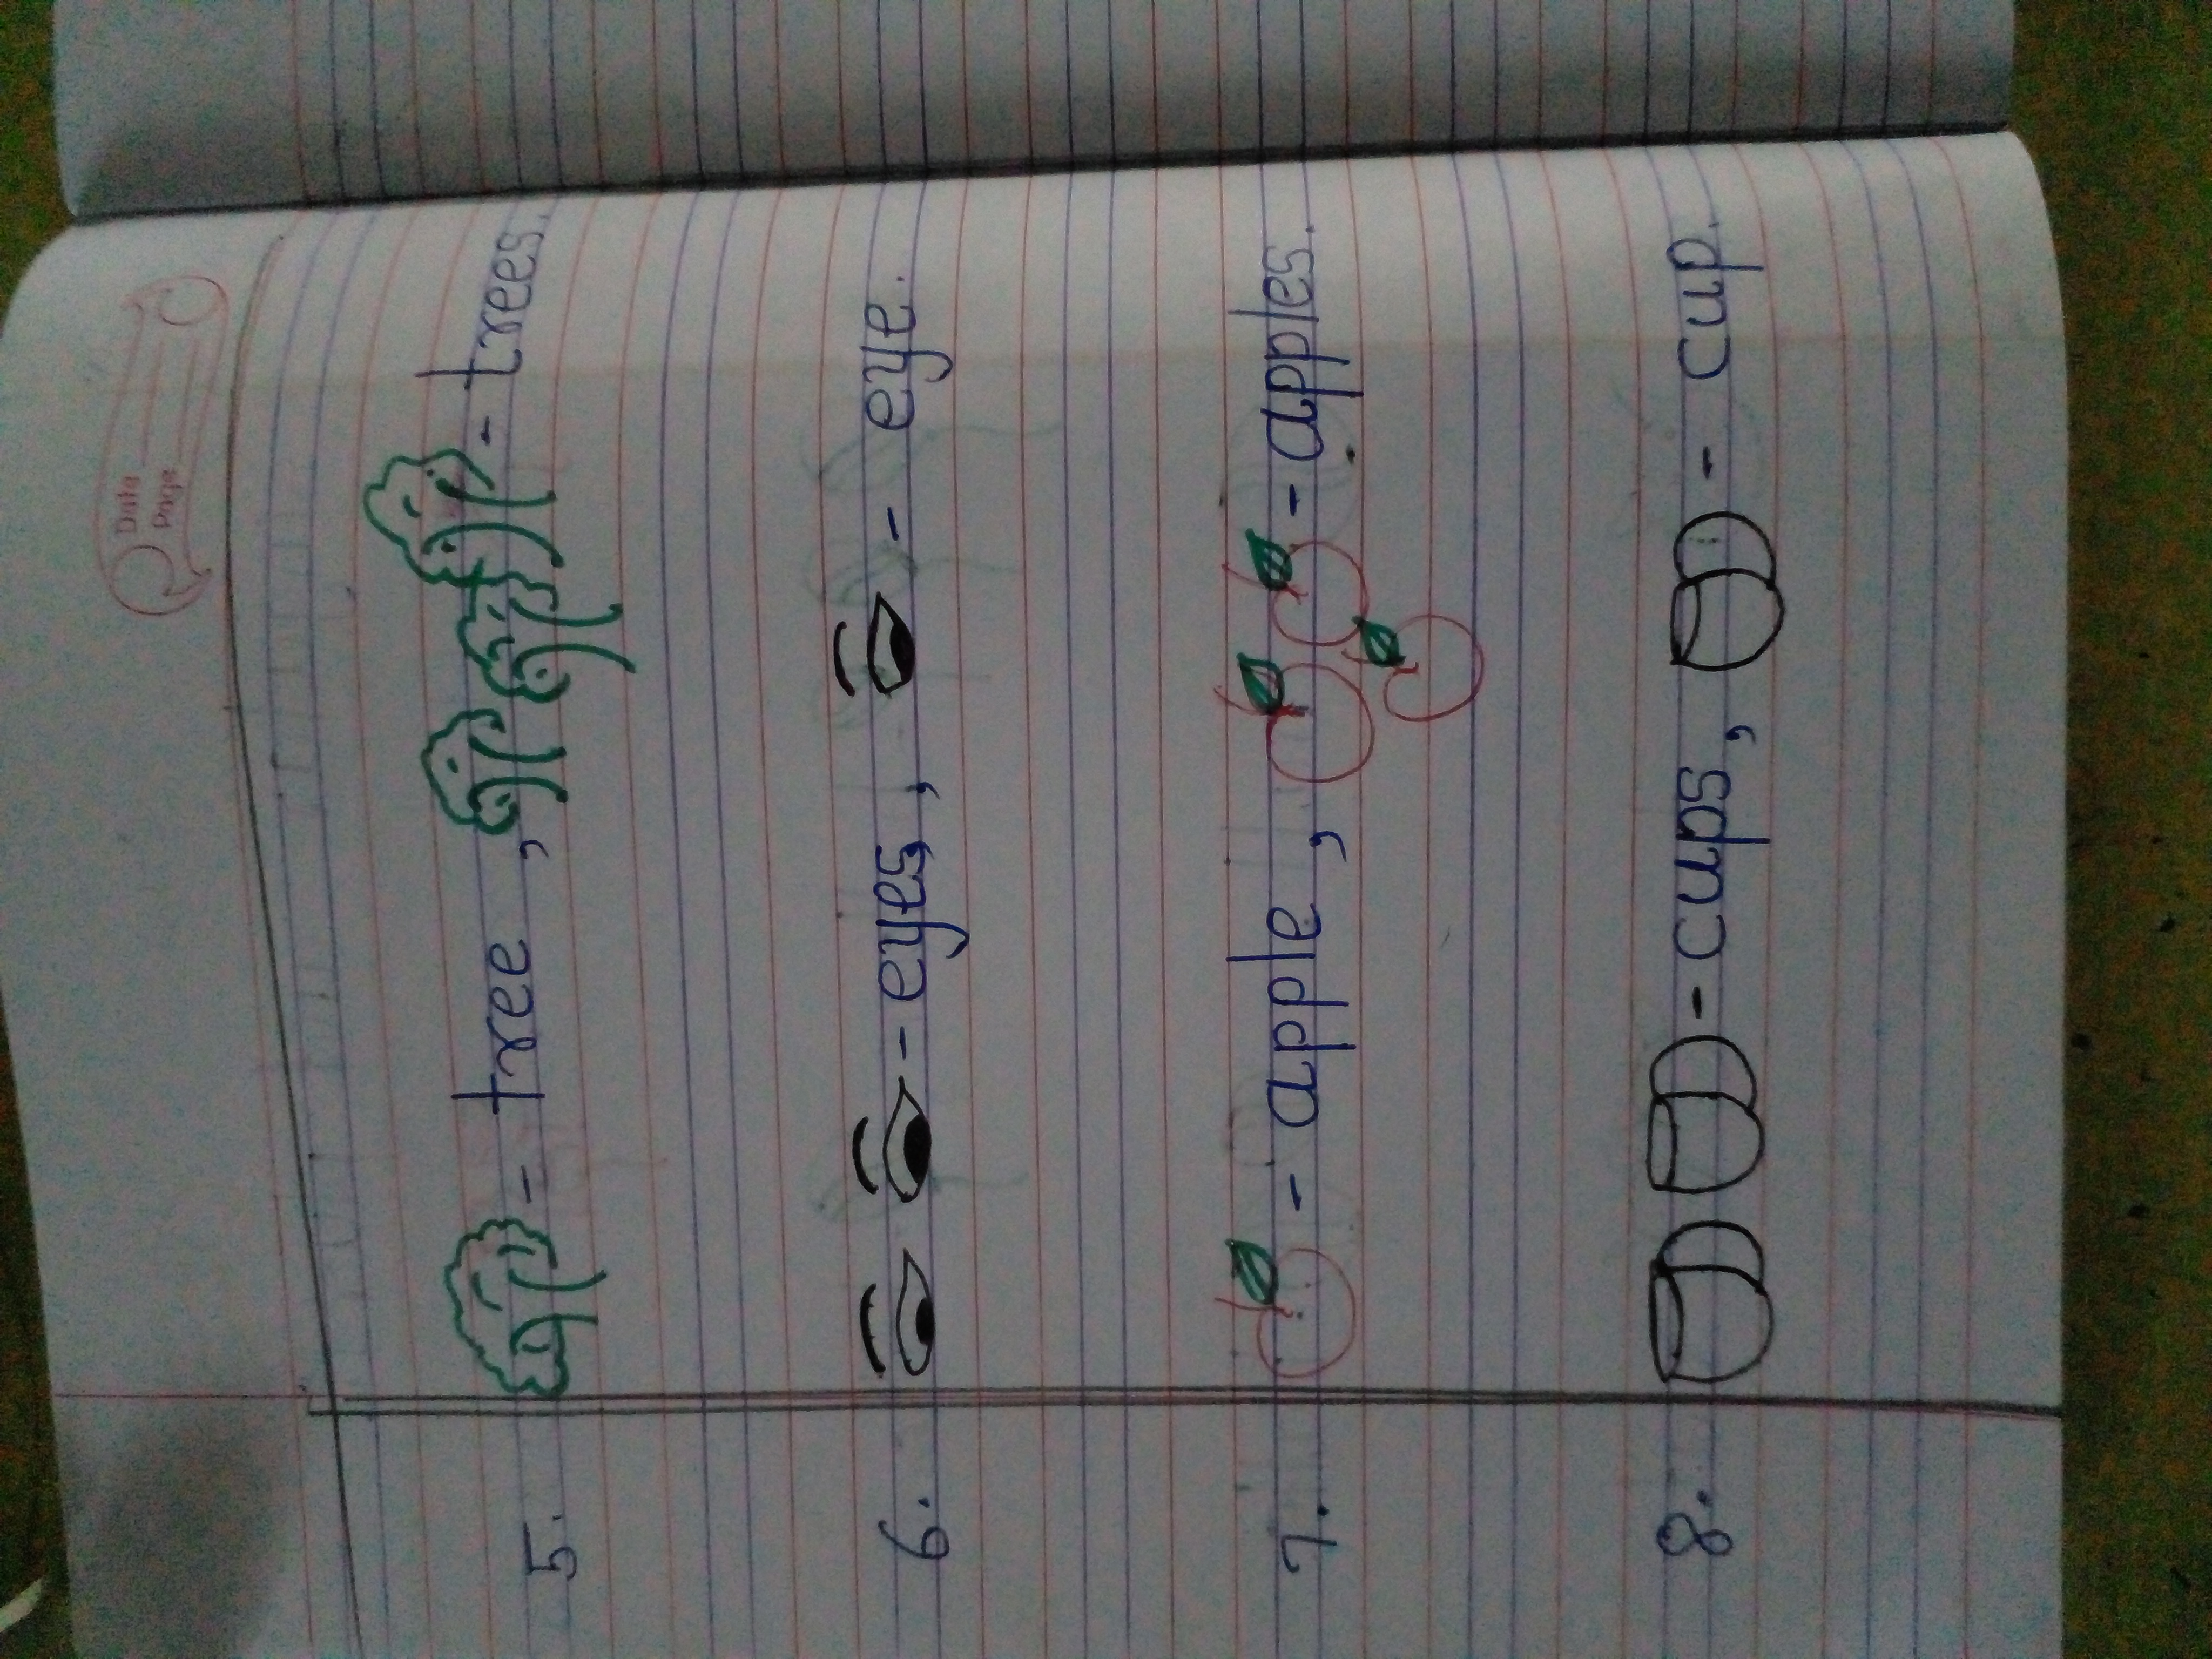 Date
Page
5. - tree , - trees.
6. - eyes, , - eye.
7. - apple , - apples.
8. - cups , - cup.